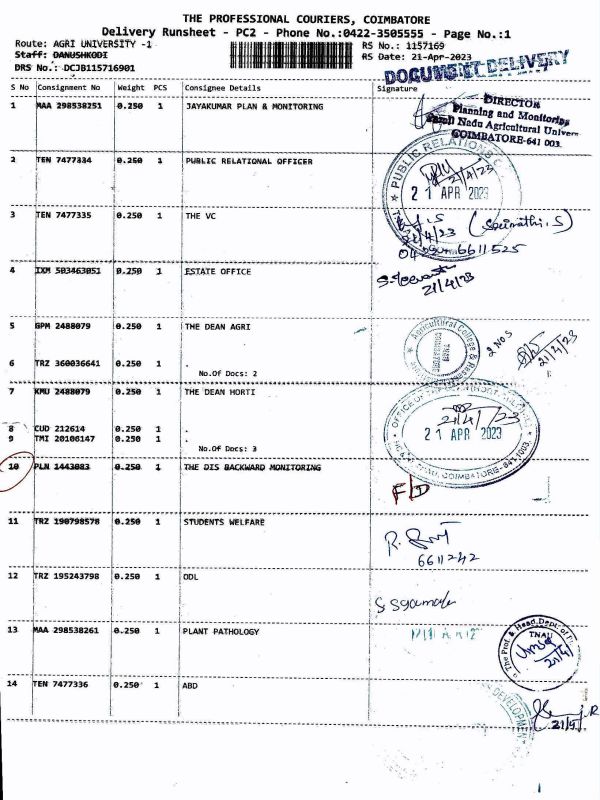 THE PROFESSIONAL COURIERS, COIMBATORE
Delivery Runsheet - PC2 - Phone No.:0422-3505555 - Page No.:1
Route: AGRI UNIVERSITY -1 RS No.: 1157169
Staff: DANUSHKODI RS Date: 21-Apr-2023
DRS No.: DCJB115716901
DOCUMENT DELIVERY
S No Consignment No Weight PCS Consignee Details Signature
1 MAA 298538251 0.250 1 JAYAKUMAR PLAN & MONITORING
DIRECTOR
Planning and Monitoring
Tamil Nadu Agricultural Univers
COIMBATORE-641 003.
2 TEN 7477334 0.250 1 PUBLIC RELATIONAL OFFICER
PUBLIC RELATIONS
21/4/23
21 APR 2023
3 TEN 7477335 0.250 1 THE VC
21/4/23
6611525
4 IXM 503463051 0.250 1 ESTATE OFFICE
21/4/23
5 GPM 2488079 0.250 1 THE DEAN AGRI
Agricultural College &
2 NOS
21/4/23
6 TRZ 360036641 0.250 1 .
No.Of Docs: 2
7 KMU 2488079 0.250 1 THE DEAN HORTI
OFFICE OF THE
21/4/23
21 APR 2023
COIMBATORE-641 003
8 CUD 212614 0.250 1 .
9 TMI 20106147 0.250 1 .
No.Of Docs: 3
10 PLN 1443083 0.250 1 THE DIS BACKWARD MONITORING
F/D
11 TRZ 190798578 0.250 1 STUDENTS WELFARE
6611242
12 TRZ 195243798 0.250 1 ODL
13 MAA 298538261 0.250 1 PLANT PATHOLOGY
The Prof. & Head, Dept. of
TNAU
21/4
14 TEN 7477336 0.250 1 ABD
DEVELOPMENT
21/4